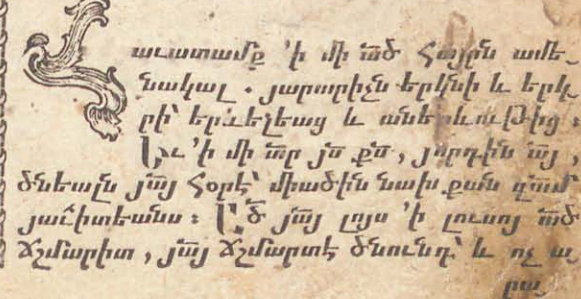 Հաւատամք ՚ի մի ած Հայրն ամե֊
նակալ . յարարիչն երկնի և երկ֊
րի՝ երևելեաց և աներևութից :
Եւ ՚ի մի տր յս քս , յորդին այ ,
ծնեալն յայ հօրէ՝ միածին նախ քան զամ
յաւիտեանս : Ած յայ լոյս ՚ի լուսոյ ած
ճշմարիտ , յայ ճշմարտէ ծնունդ՝ և ոչ ա֊
րա֊